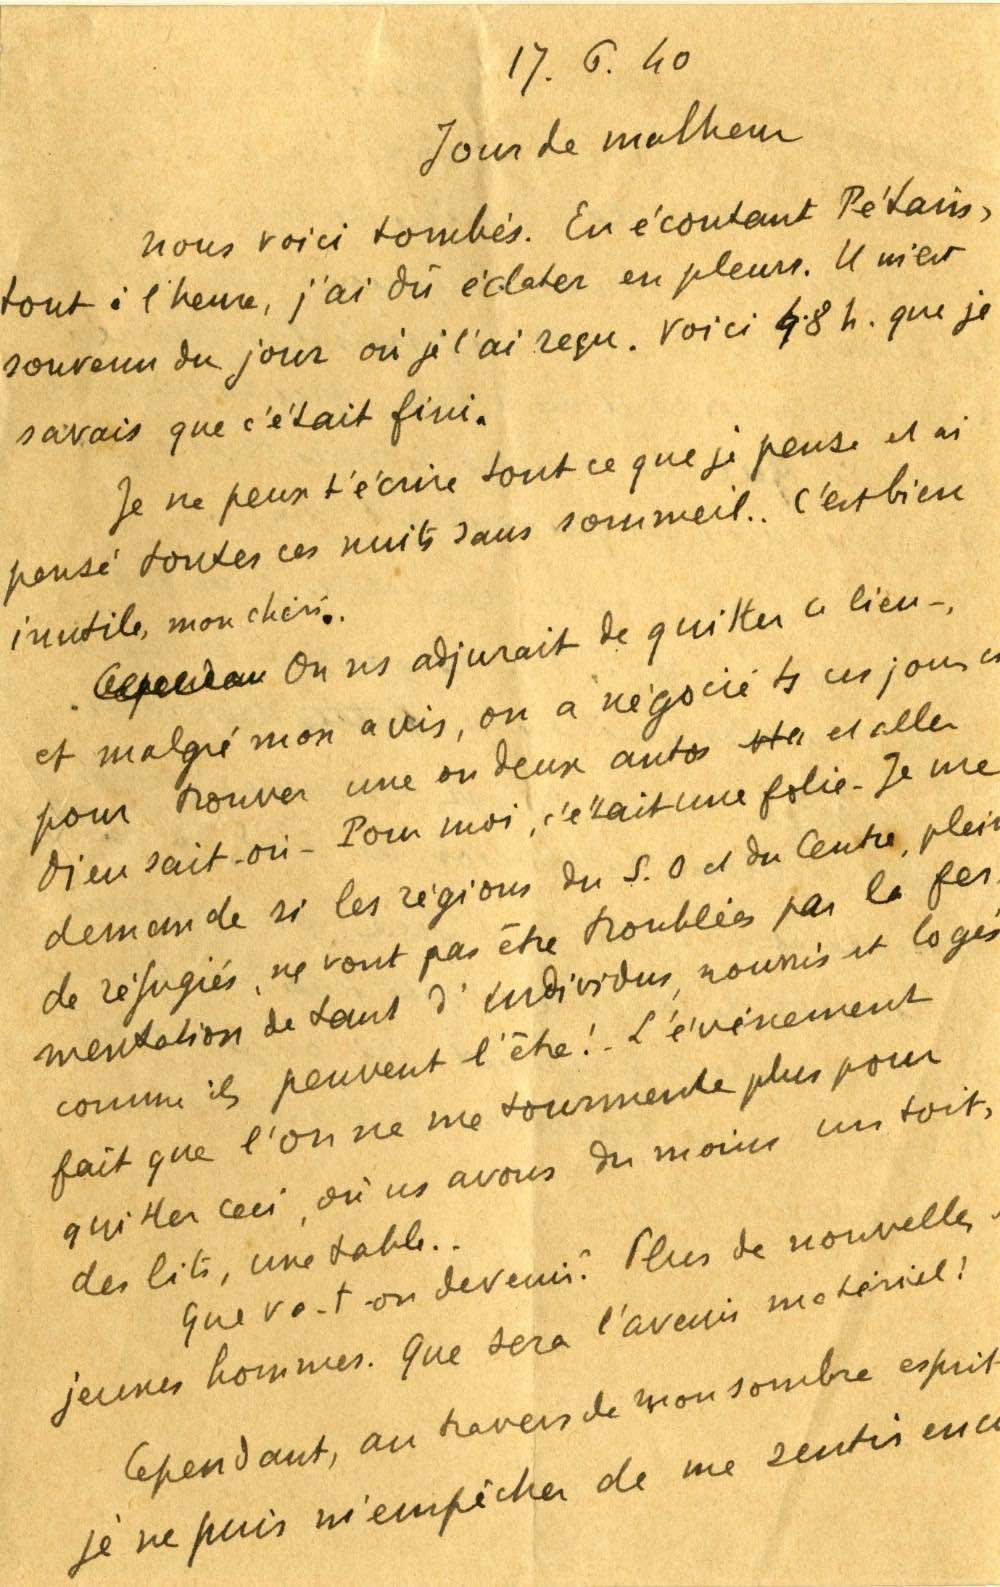 17. 6. 40
Jour de malheur
nous voici tombés. En écoutant Pétain,
tout à l'heure, j'ai dû éclater en pleurs. Il m'est
souvenu du jour où je l'ai reçu. Voici 48 h. que je
savais que c'était fini.
Je ne peux t'écrire tout ce que je pense et ai
pensé toutes ces nuits sans sommeil.. C'est bien
inutile, mon chéri..
Cependan On ns adjurait de quitter ce lieu -,
et malgré mon avis, on a négocié ts ces jours
pour trouver une ou deux autos et aller
Dieu sait-où - Pour moi, c'était une folie - Je me
demande si les régions du S. O et du Centre, plein
de réfugiés, ne vont pas être troublées par la fer-
mentation de tant d'individus, nourris et logés
comme ils peuvent l'être! - L'événement
fait que l'on ne me tourmente plus pour
quitter ceci, où ns avons du moins un toit,
des lits, une table..
Que va-t-on devenir? Plus de nouvelles
jeunes hommes. Que sera l'avenir matériel!
Cependant, au travers de mon sombre esprit
je ne puis m'empêcher de me sentir enco